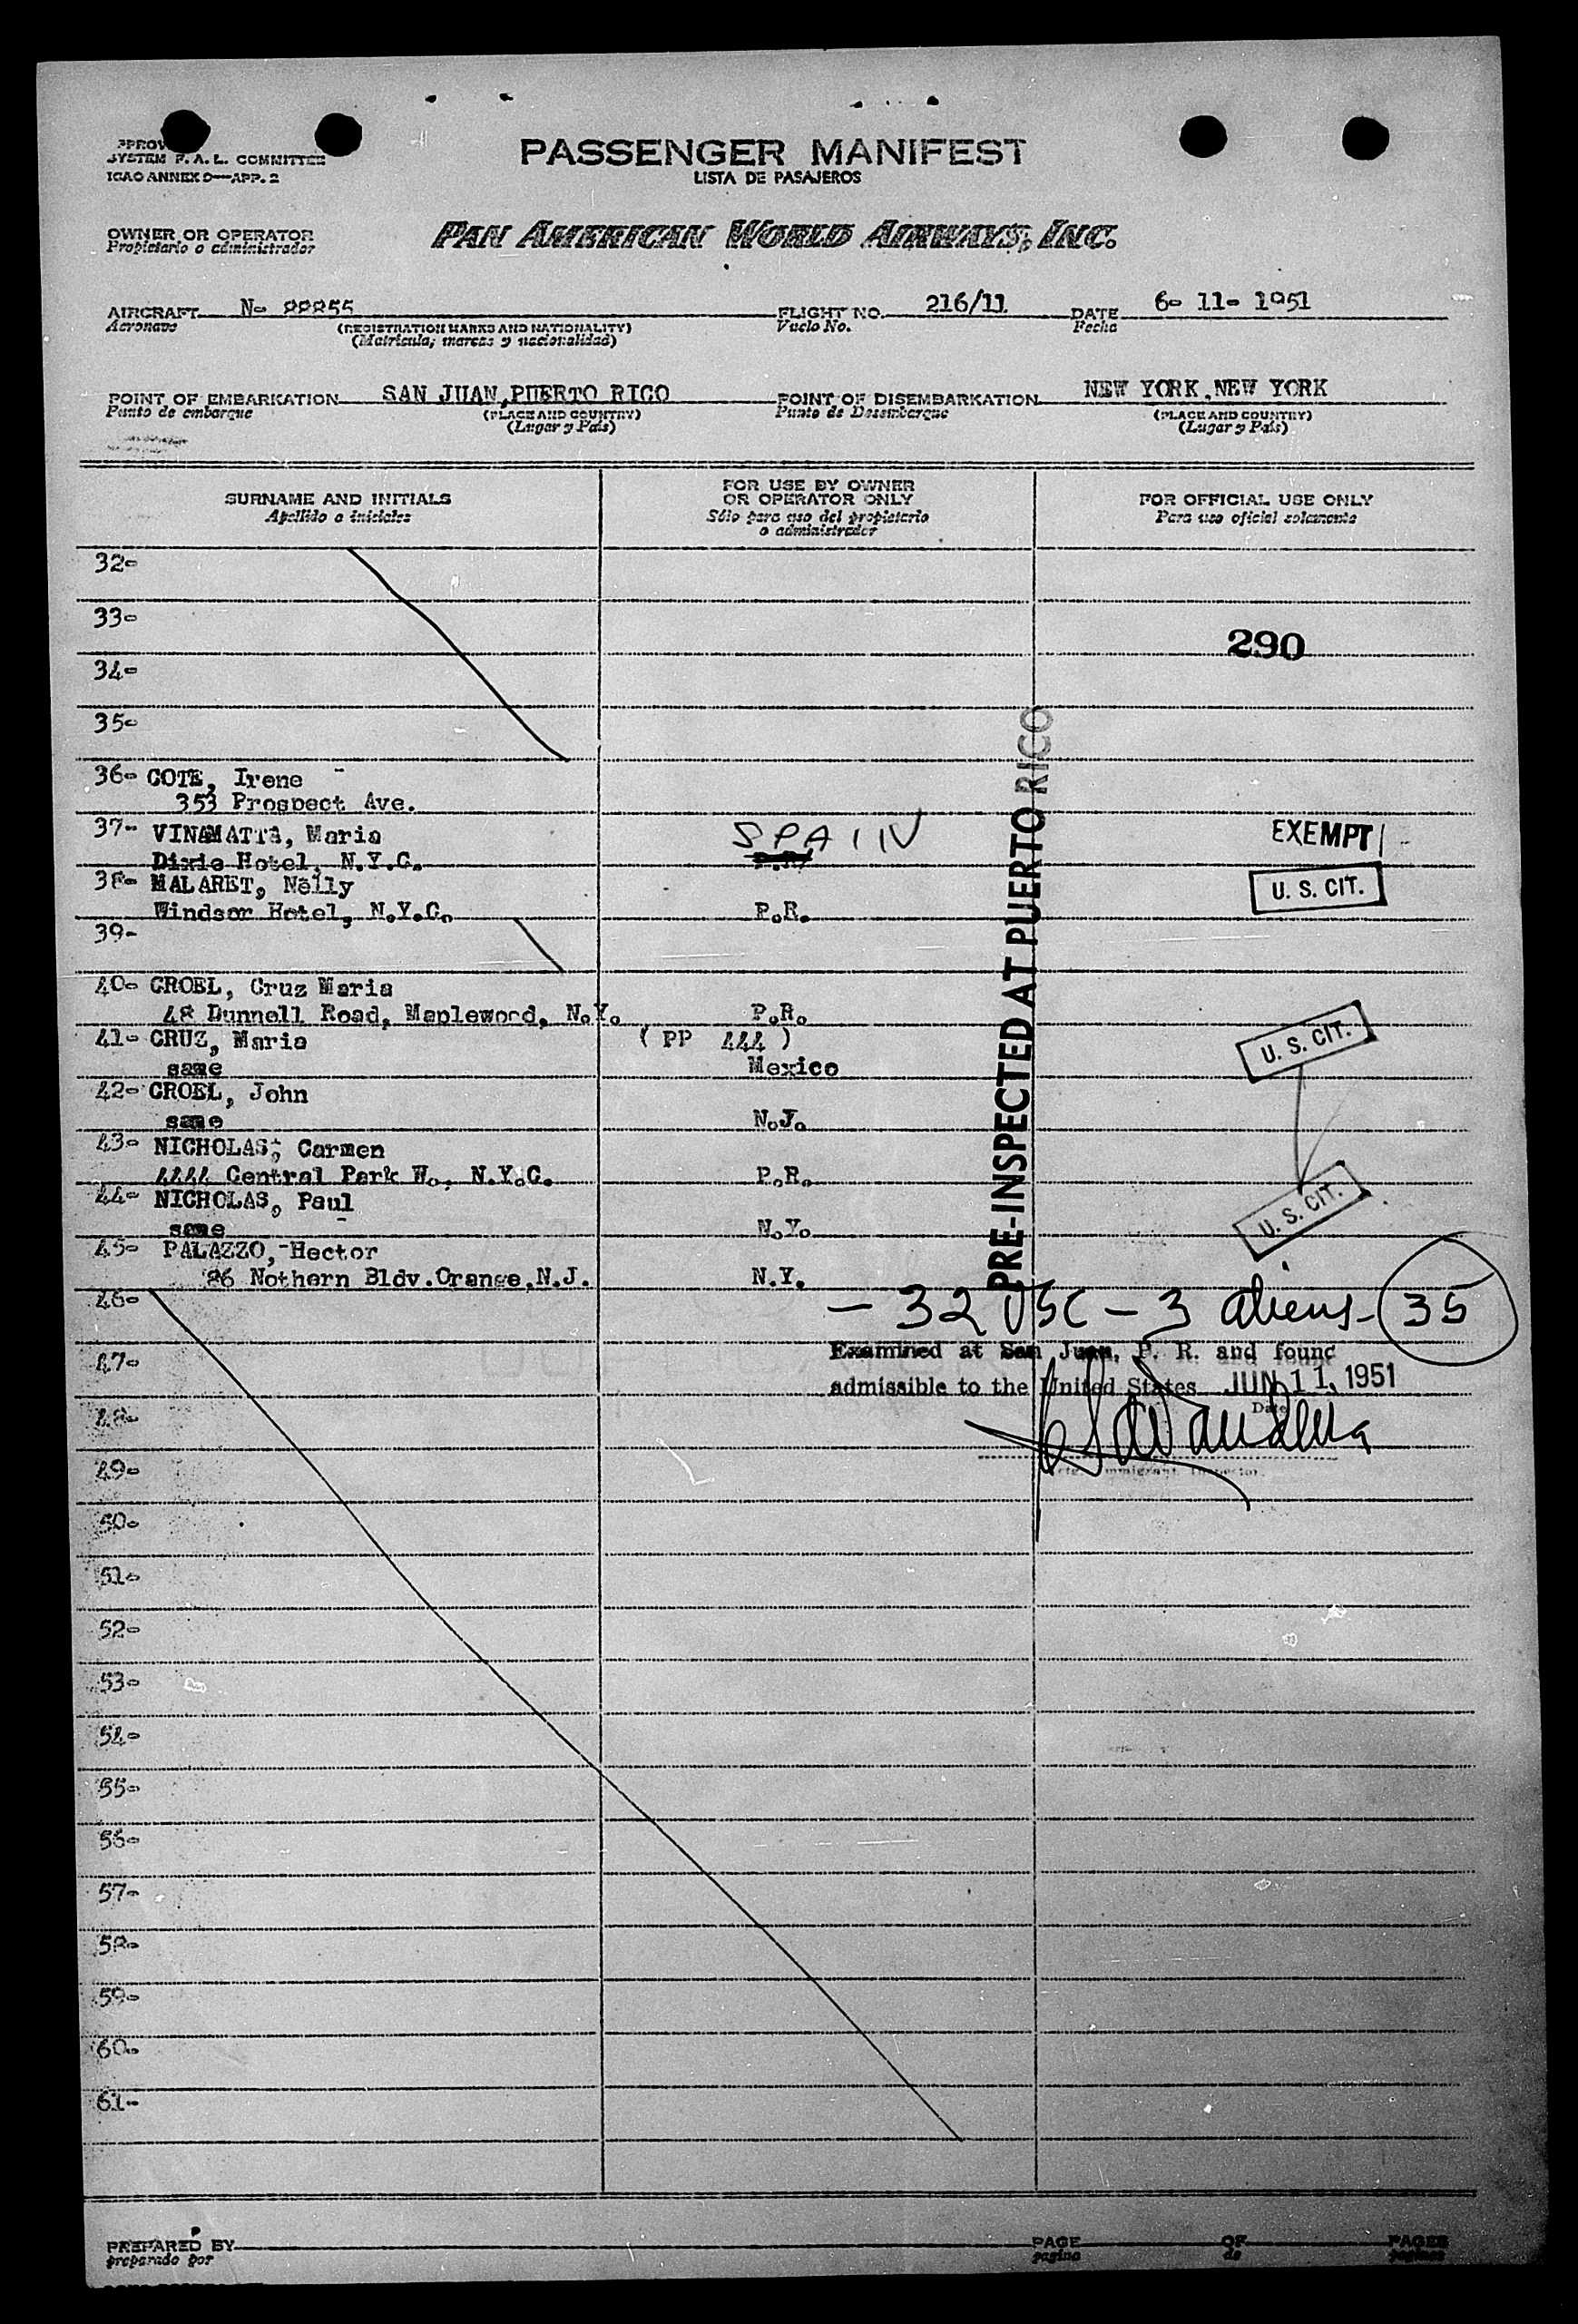 SYSTEM F. A. L. COMMITTEE
ICAO ANNEX 9—APP. 2
PASSENGER MANIFEST
LISTA DE PASAJEROS
OWNER OR OPERATOR
Propietario o administrador
PAN AMERICAN WORLD AIRWAYS, INC.
AIRCRAFT N- 88855 FLIGHT NO. 216/11 DATE 6- 11- 1951
Aeronave (REGISTRATION MARKS AND NATIONALITY) Vuelo No. Fecha
(Matricula; marcas y nacionalidad)
POINT OF EMBARKATION SAN JUAN, PUERTO RICO POINT OF DISEMBARKATION NEW YORK, NEW YORK
Punto de embarque (PLACE AND COUNTRY) Punto de Desembarque (PLACE AND COUNTRY)
(Lugar y País) (Lugar y País)
SURNAME AND INITIALS
Apellido e iniciales
FOR USE BY OWNER
OR OPERATOR ONLY
Sólo para uso del propietario
o administrador
FOR OFFICIAL USE ONLY
Para uso oficial solamente
32-
33-
290
34-
35-
36- COTE, Irene
353 Prospect Ave.
37- VINAMATTA, Maria SPAIN EXEMPT
Dixie Hotel, N.Y.C. P.R.
38- MALARET, Nelly U. S. CIT.
Windsor Hotel, N.Y.C. P.R.
39-
40- CROEL, Cruz Maria
48 Dunnell Road, Maplewood, N.Y. P.R.
41- CRUZ, Maria ( PP 444 ) U. S. CIT.
same Mexico
42- CROEL, John
same N.J.
43- NICHOLAS, Carmen
4444 Central Park W., N.Y.C. P.R.
44- NICHOLAS, Paul U. S. CIT.
same N.Y.
45- PALAZZO, Hector
86 Nothern Bldv.Orange,N.J. N.Y.
PRE-INSPECTED AT PUERTO RICO
46- — 32 USC — 3 aliens - 35
Examined at San Juan, P. R. and found
47-
admissible to the United States JUN 11, 1951
Date
48-
49-
Immigrant Inspector
50-
51-
52-
53-
54-
55-
56-
57-
58-
59-
60-
61-
PREPARED BY PAGE OF PAGES
preparado por pagina de paginas